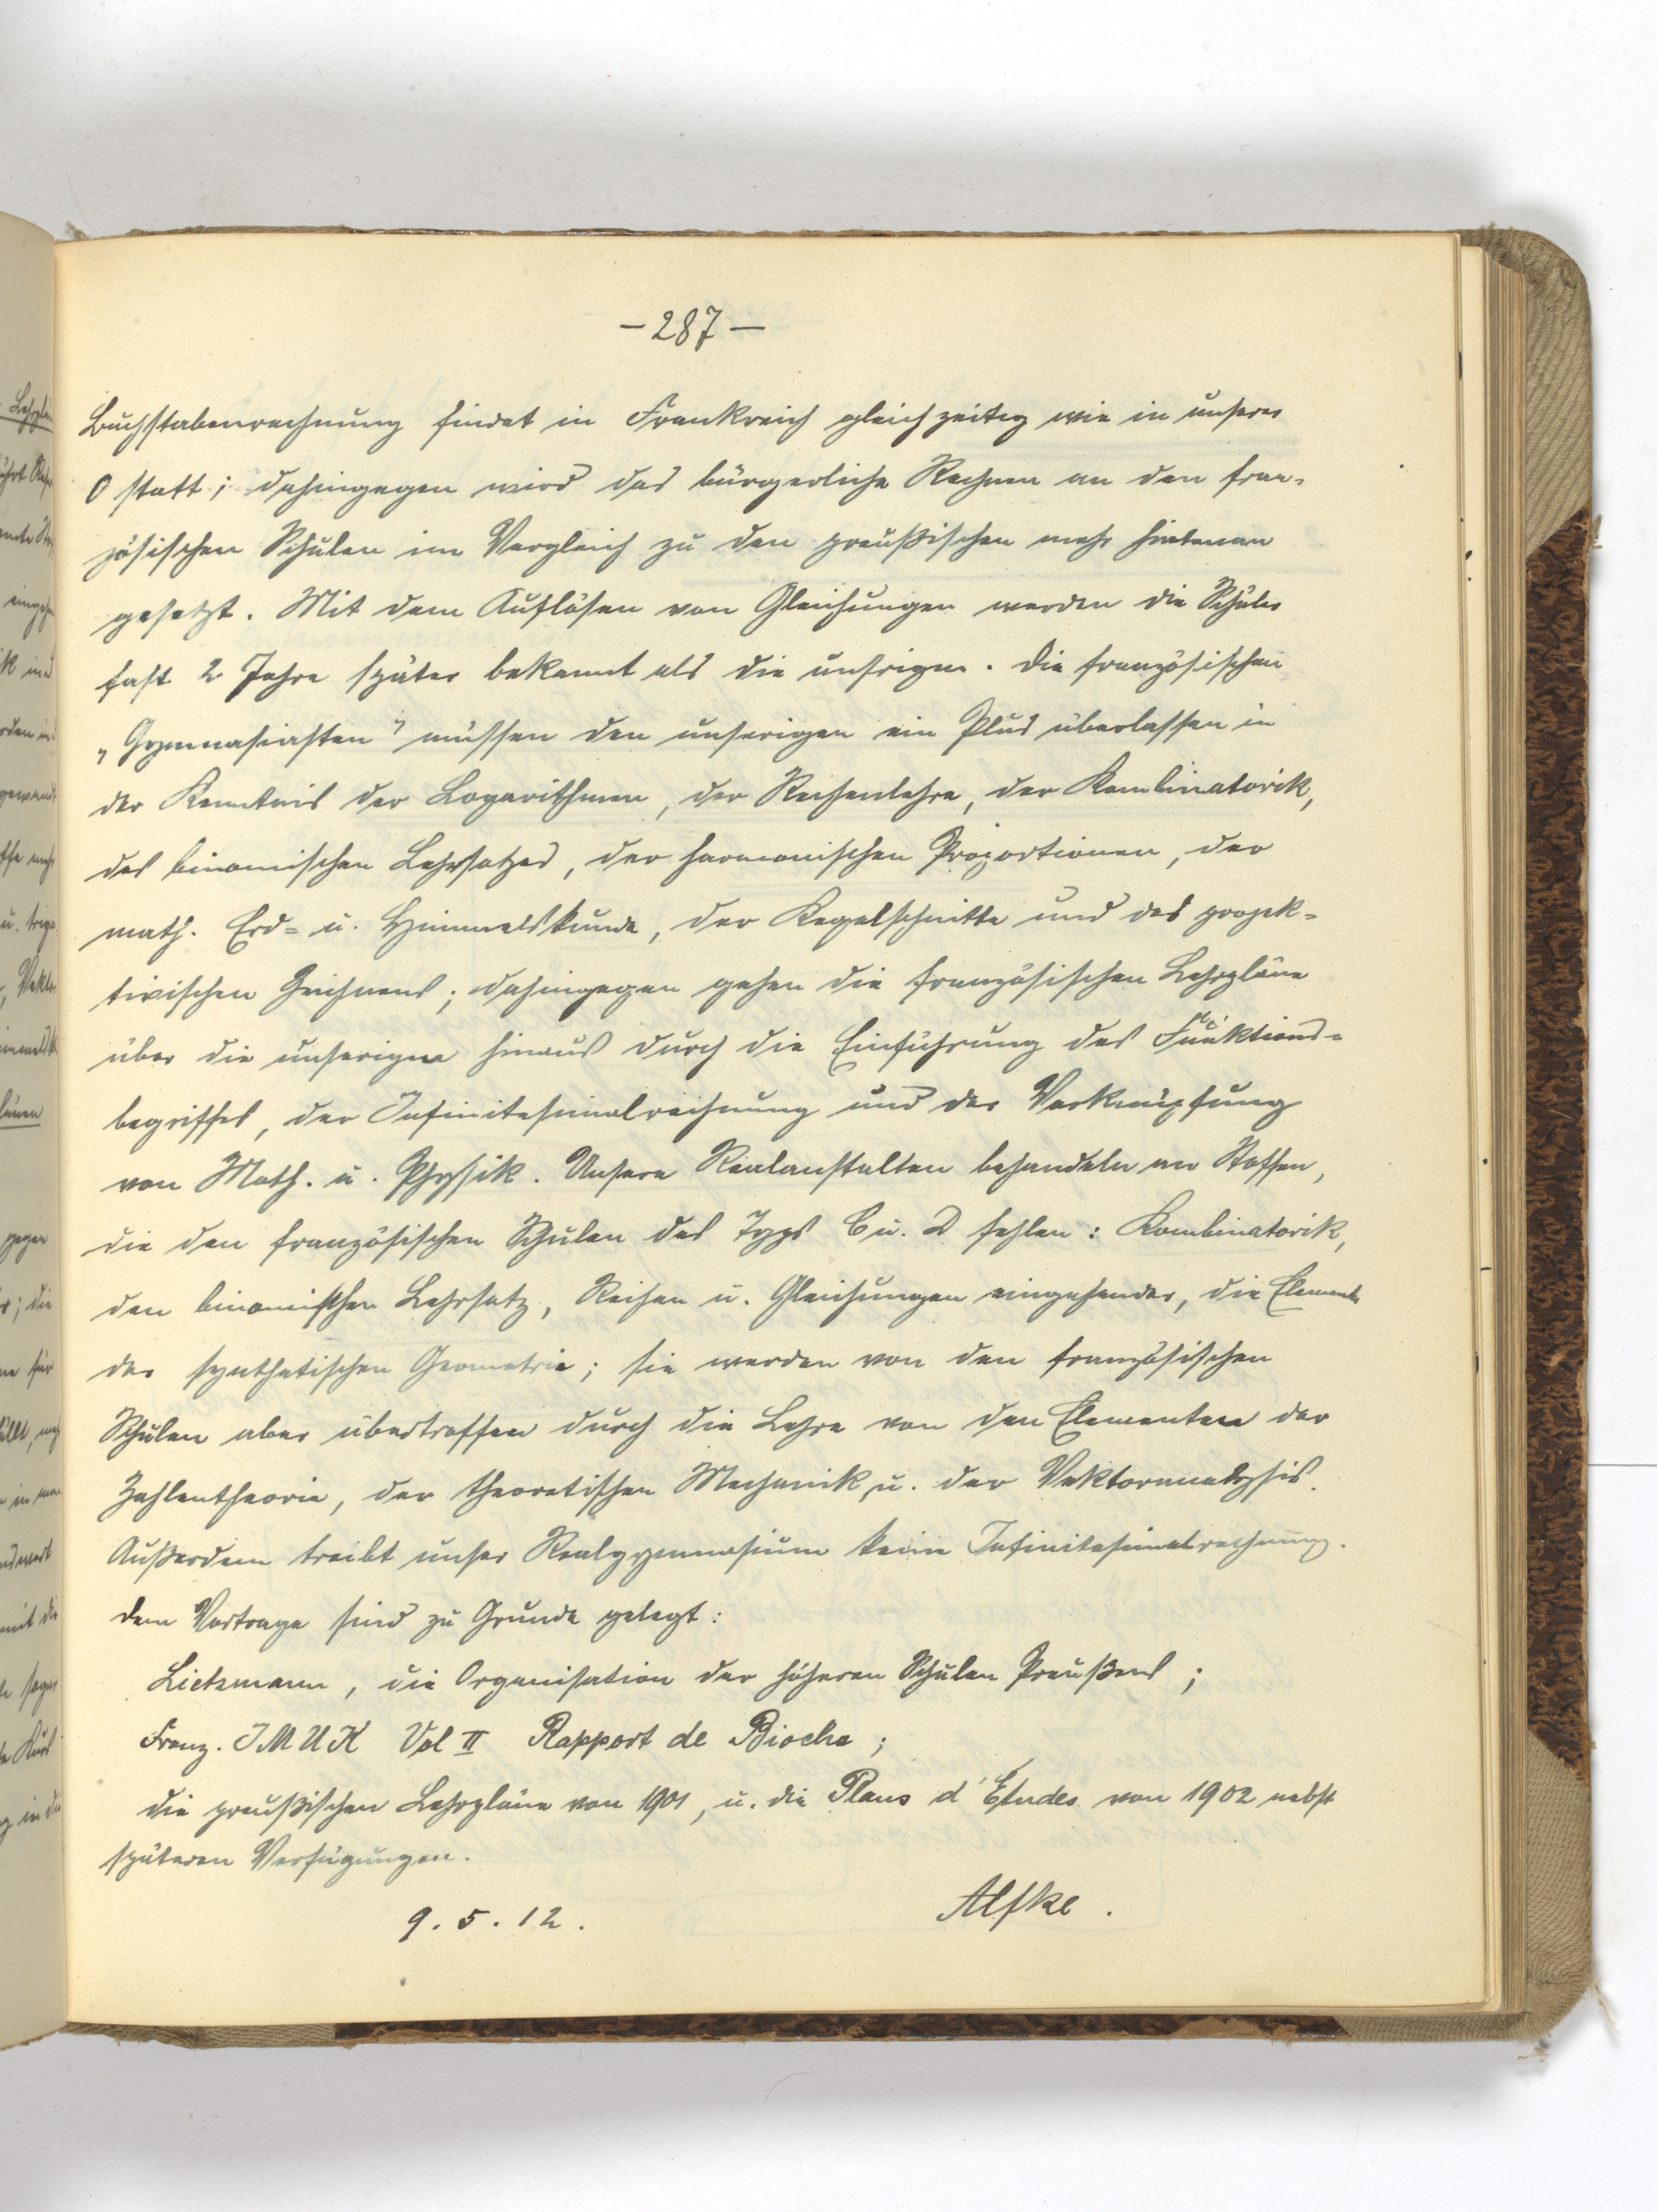 – 287 –
Buchstabenrechnung findet in Frankreich gleichzeitig wie in unserer
O statt; dahingegen wird das bürgerliche Rechnen an den fran-
zösischen Schulen im Vergleich zu den preußischen mehr hintenan
gesetzt. Mit dem Auflösen von Gleichungen werden die Schüler
fast 2 Jahre später bekannt als die unsrigen. Die französischen
„Gymnasiasten" müssen den unserigen ein Plus überlassen in
der Kenntnis der Logarithmen, der Reihenlehre, der Kombinatorik,
des binomischen Lehrsatzes, der harmonischen Proportionen, der
math. Erd- u. Himmelskunde, der Kegelschnitte und des projek-
tivischen Zeichnens; dahingegen gehen die französischen Lehrpläne
über die unserigen hinaus durch die Einführung des Funktions-
begriffes, der Infinitesimalrechnung und der Verknüpfung
von Math. u. Physik. Unsere Realanstalten behandeln an Stoffen,
die den französischen Schulen des Typs C u. D fehlen: Kombinatorik,
den binomischen Lehrsatz, Reihen u. Gleichungen eingehender, die Elemente
der synthetischen Geometrie; sie werden von den französischen
Schulen aber übertroffen durch die Lehre von den Elementen der
Zahlentheorie, der theoretischen Mechanik, u. der Vektoranalysis.
Außerdem treibt unser Realgymnasium keine Infinitesimalrechnung.
Dem Vortrage sind zu Grunde gelegt:
Lietzmann, die Organisation der höheren Schulen Preußens;
Franz. IMUK Vol II Rapport de Bioche;
die preußischen Lehrpläne von 1901, u. die Plans d'Etudes von 1902 nebst
späteren Verfügungen.
9.5.12. Alfke.